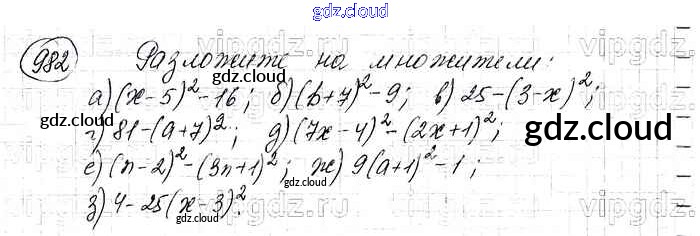 gdz.cloud
982 Разложите на множители:
gdz.cloud
а) (x-5)²-16; б) (b+7)²-9; в) 25-(3-x)²;
gdz.cloud gdz.cloud gdz.cloud
г) 81-(a+7)²; д) (7x-4)²-(2x+1)²;
е) (n-2)²-(3n+1)²; ж) 9(a+1)²-1;
gdz.cloud
з) 4-25(x-3)².